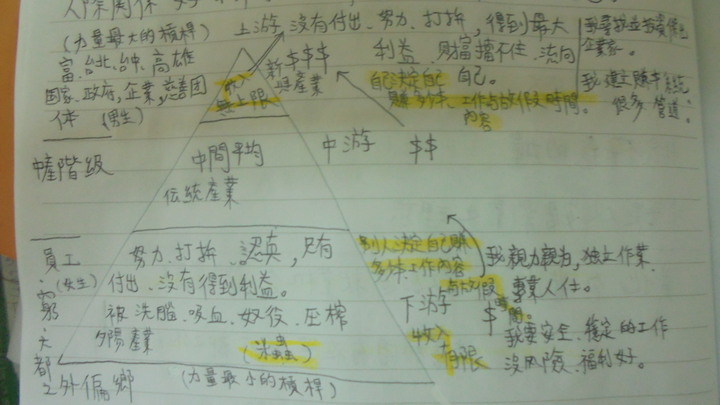 人際關係
(力量最大的槓桿)
富、台北、台中、高雄
國家、政府、企業、慈善團
体 (男生)
上游 沒有付出、努力、打拚,得到最大
利益、財富擋不住、流向
自己。
新 $$$
興產業
收入
無上限
自己決定自己
賺多少$、工作與放假時間。
內容
企業家。
我建立賺$系統
很多管道。
中產階級
中間平均
傳統產業
中游 $$
員工
(女生)
窮
大都
之外偏鄉
努力、打拚、認真,只有
付出、沒有得到利益。
被洗腦、吸血、奴役、壓榨
夕陽產業
(米蟲)
(力量最小的槓桿)
別人決定自己賺
多少$工作內容
與放假
時間。
下游 $
收入
有限
我親力親為,獨立作業、
專業人仕。
我要安全、穩定的工作
沒風險、福利好。